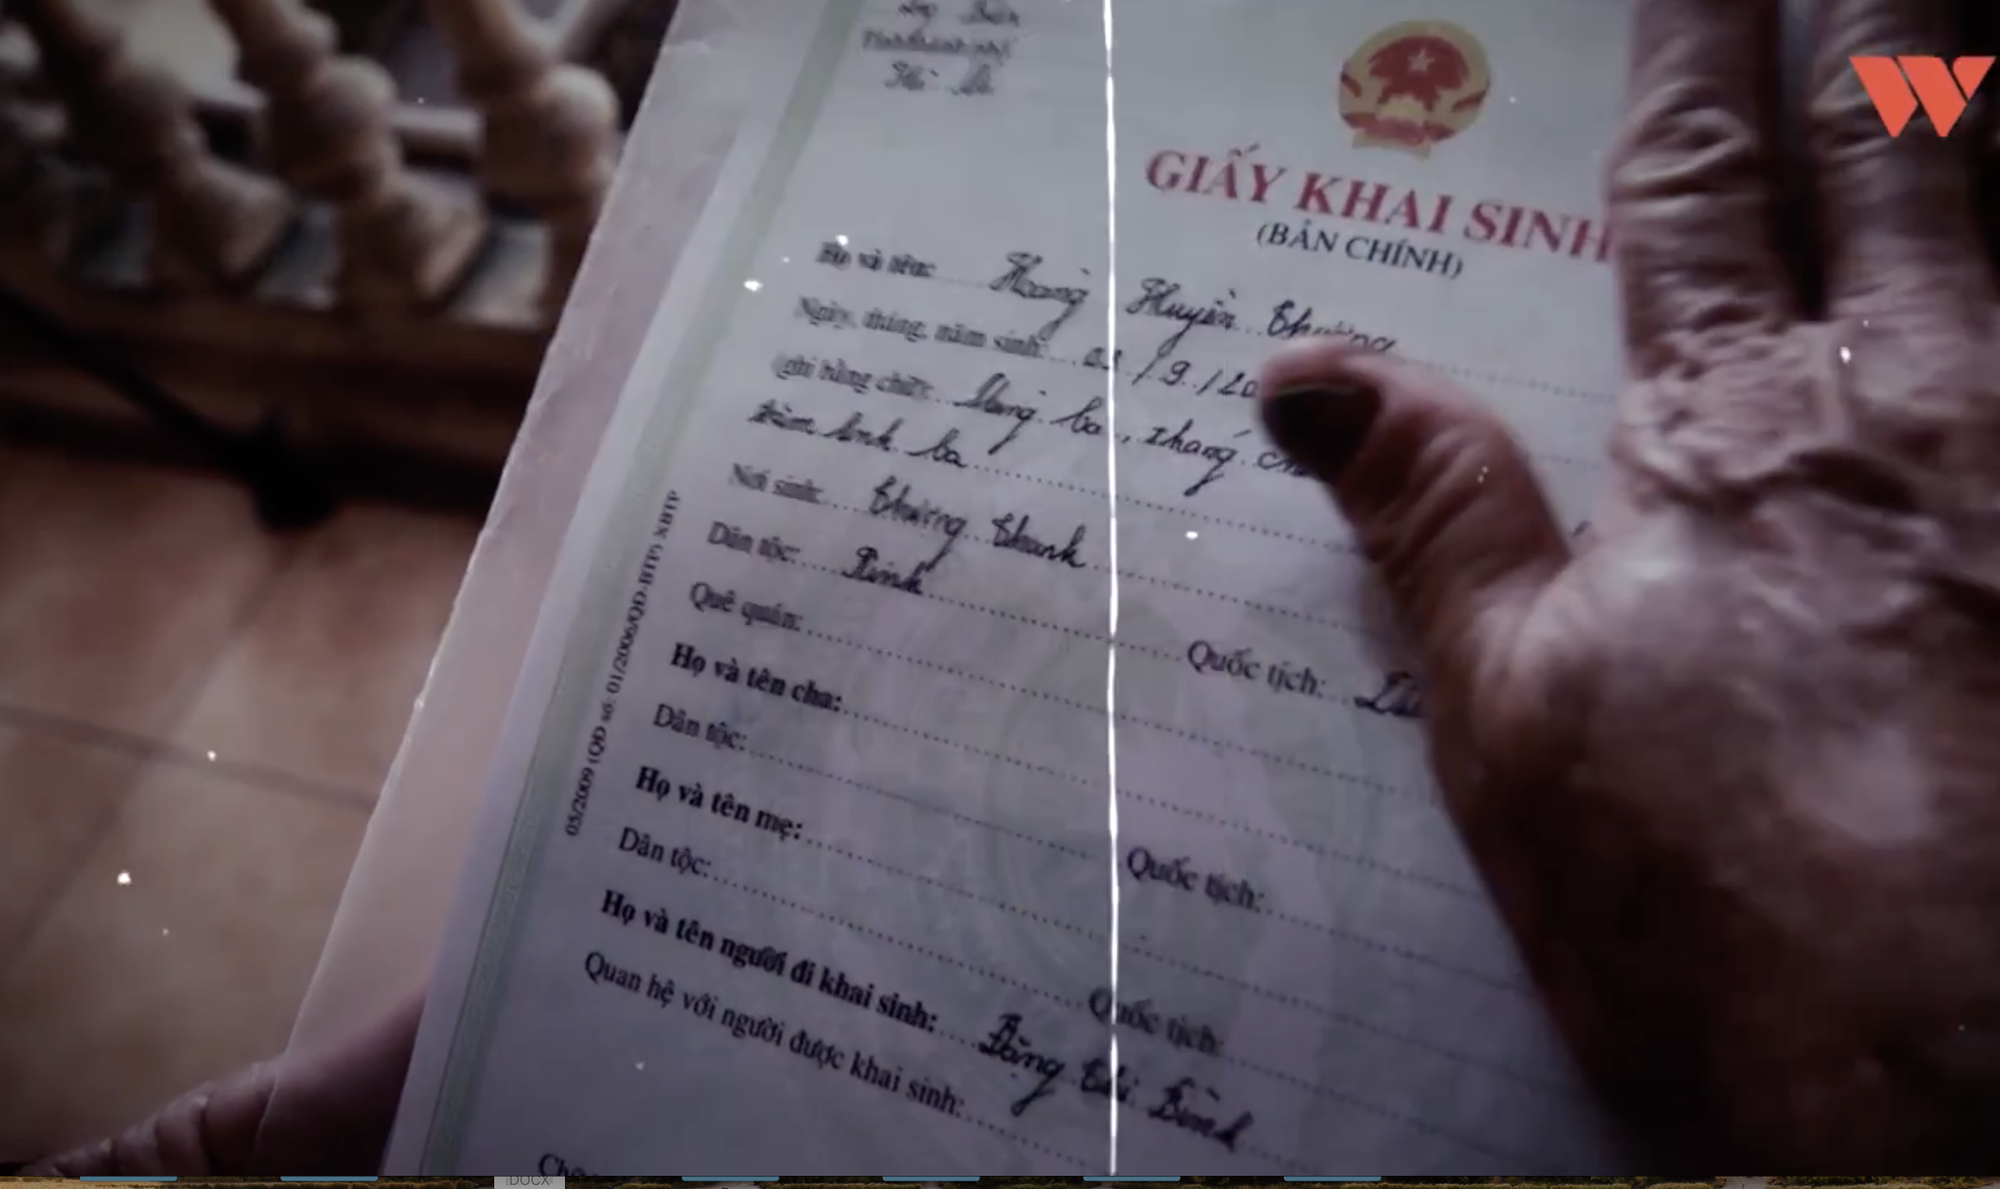 GIẤY KHAI SINH
(BẢN CHÍNH)
Họ và tên: Hoàng Huyền Thương
Ngày, tháng, năm sinh: 03/9/20
(ghi bằng chữ): Mùng ba, tháng
ba
Nơi sinh: Thượng Thanh
Dân tộc: Kinh Quốc tịch:
Quê quán:
Họ và tên cha:
Dân tộc: Quốc tịch:
Họ và tên mẹ:
Dân tộc: Quốc tịch:
Họ và tên người đi khai sinh: Đặng Thị Bình
Quan hệ với người được khai sinh:
05/2009 (QĐ số: 01/2006/QĐ-BTP) XBTP
DOCX